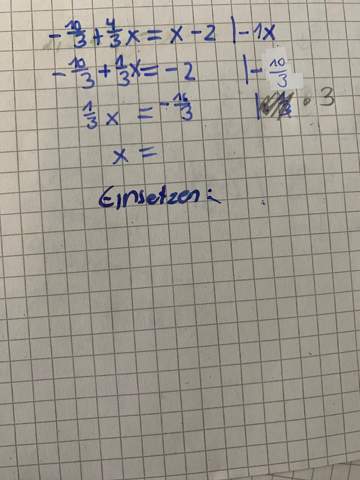 -10/3 + 4/3 x = x - 2 |-1x
-10/3 + 1/3 x = -2 |- 10/3
1/3 x = -16/3 | · 3
x =
Einsetzen: